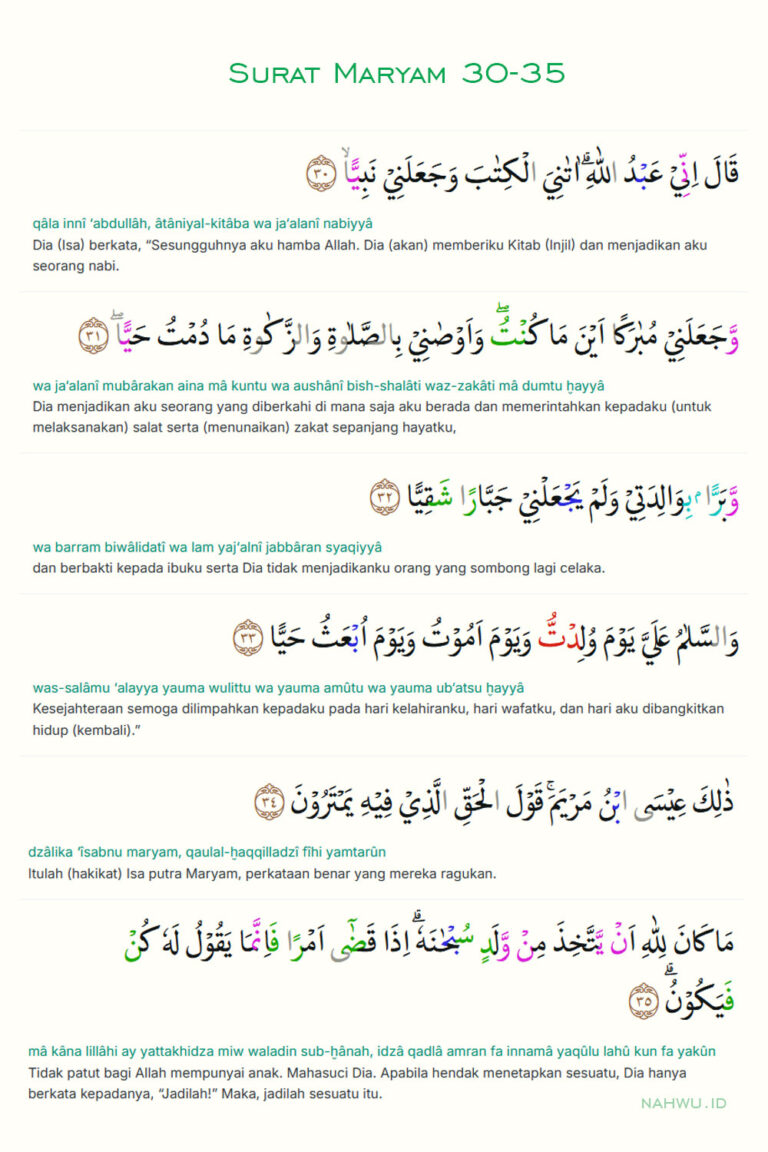 SURAT MARYAM 30-35
قَالَ اِنِّيْ عَبْدُ اللّٰهِ ۗاٰتٰنِيَ الْكِتٰبَ وَجَعَلَنِيْ نَبِيًّا ۙ ٣٠
qâla innî ‘abdullâh, âtâniyal-kitâba wa ja‘alanî nabiyyâ
Dia (Isa) berkata, “Sesungguhnya aku hamba Allah. Dia (akan) memberiku Kitab (Injil) dan menjadikan aku
seorang nabi.
وَّجَعَلَنِيْ مُبٰرَكًا اَيْنَ مَا كُنْتُۖ وَاَوْصٰنِيْ بِالصَّلٰوةِ وَالزَّكٰوةِ مَا دُمْتُ حَيًّا ۖ ٣١
wa ja‘alanî mubârakan aina mâ kuntu wa aushânî bish-shalâti waz-zakâti mâ dumtu ḫayyâ
Dia menjadikan aku seorang yang diberkahi di mana saja aku berada dan memerintahkan kepadaku (untuk
melaksanakan) salat serta (menunaikan) zakat sepanjang hayatku,
وَّبَرًّا ۢبِوَالِدَتِيْ وَلَمْ يَجْعَلْنِيْ جَبَّارًا شَقِيًّا ٣٢
wa barram biwâlidatî wa lam yaj‘alnî jabbâran syaqiyyâ
dan berbakti kepada ibuku serta Dia tidak menjadikanku orang yang sombong lagi celaka.
وَالسَّلٰمُ عَلَيَّ يَوْمَ وُلِدْتُّ وَيَوْمَ اَمُوْتُ وَيَوْمَ اُبْعَثُ حَيًّا ٣٣
was-salâmu ‘alayya yauma wulittu wa yauma amûtu wa yauma ub‘atsu ḫayyâ
Kesejahteraan semoga dilimpahkan kepadaku pada hari kelahiranku, hari wafatku, dan hari aku dibangkitkan
hidup (kembali).”
ذٰلِكَ عِيْسَى ابْنُ مَرْيَمَ ۚقَوْلَ الْحَقِّ الَّذِيْ فِيْهِ يَمْتَرُوْنَ ٣٤
dzâlika ‘îsabnu maryam, qaulal-ḫaqqilladzî fîhi yamtarûn
Itulah (hakikat) Isa putra Maryam, perkataan benar yang mereka ragukan.
مَا كَانَ لِلّٰهِ اَنْ يَّتَّخِذَ مِنْ وَّلَدٍ سُبْحٰنَهٗ ۗاِذَا قَضٰٓى اَمْرًا فَاِنَّمَا يَقُوْلُ لَهٗ كُنْ
فَيَكُوْنُ ۗ ٣٥
mâ kâna lillâhi ay yattakhidza miw waladin sub-ḫânah, idzâ qadlâ amran fa innamâ yaqûlu lahû kun fa yakûn
Tidak patut bagi Allah mempunyai anak. Mahasuci Dia. Apabila hendak menetapkan sesuatu, Dia hanya
berkata kepadanya, “Jadilah!” Maka, jadilah sesuatu itu.
NAHWU.ID